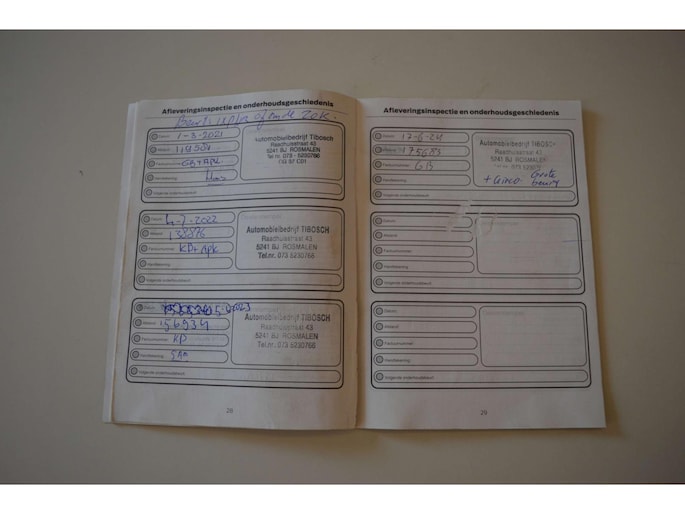 Afleveringsinspectie en onderhoudsgeschiedenis
Datum: 1-3-2021
Afstand:
Factuurnummer: GB+APK
Handtekening:
Volgende onderhoudsbeurt:
Automobielbedrijf Tibosch
Raadhuisstraat 43
5241 BJ ROSMALEN
Tel nr. 073 - 5230766
Datum: 4-7-2022
Afstand: 138876
Factuurnummer: KB+APK
Handtekening:
Volgende onderhoudsbeurt:
Automobielbedrijf TIBOSCH
Raadhuisstraat 43
5241 BJ ROSMALEN
Tel.nr. 073 5230766
Datum:
Afstand: 156934
Factuurnummer: KB
Handtekening:
Volgende onderhoudsbeurt:
Automobielbedrijf TIBOSCH
Raadhuisstraat 43
5241 BJ ROSMALEN
Tel.nr. 073 5230766
28
Afleveringsinspectie en onderhoudsgeschiedenis
Datum: 17-6-24
Afstand: 175683
Factuurnummer: GB
Handtekening:
Volgende onderhoudsbeurt:
Automobielbedrijf TIBOSCH
Raadhuisstraat 43
5241 BJ ROSMALEN
+ Airco
Grote
beurt
Datum:
Afstand:
Factuurnummer:
Handtekening:
Volgende onderhoudsbeurt:
Datum:
Afstand:
Factuurnummer:
Handtekening:
Volgende onderhoudsbeurt:
29